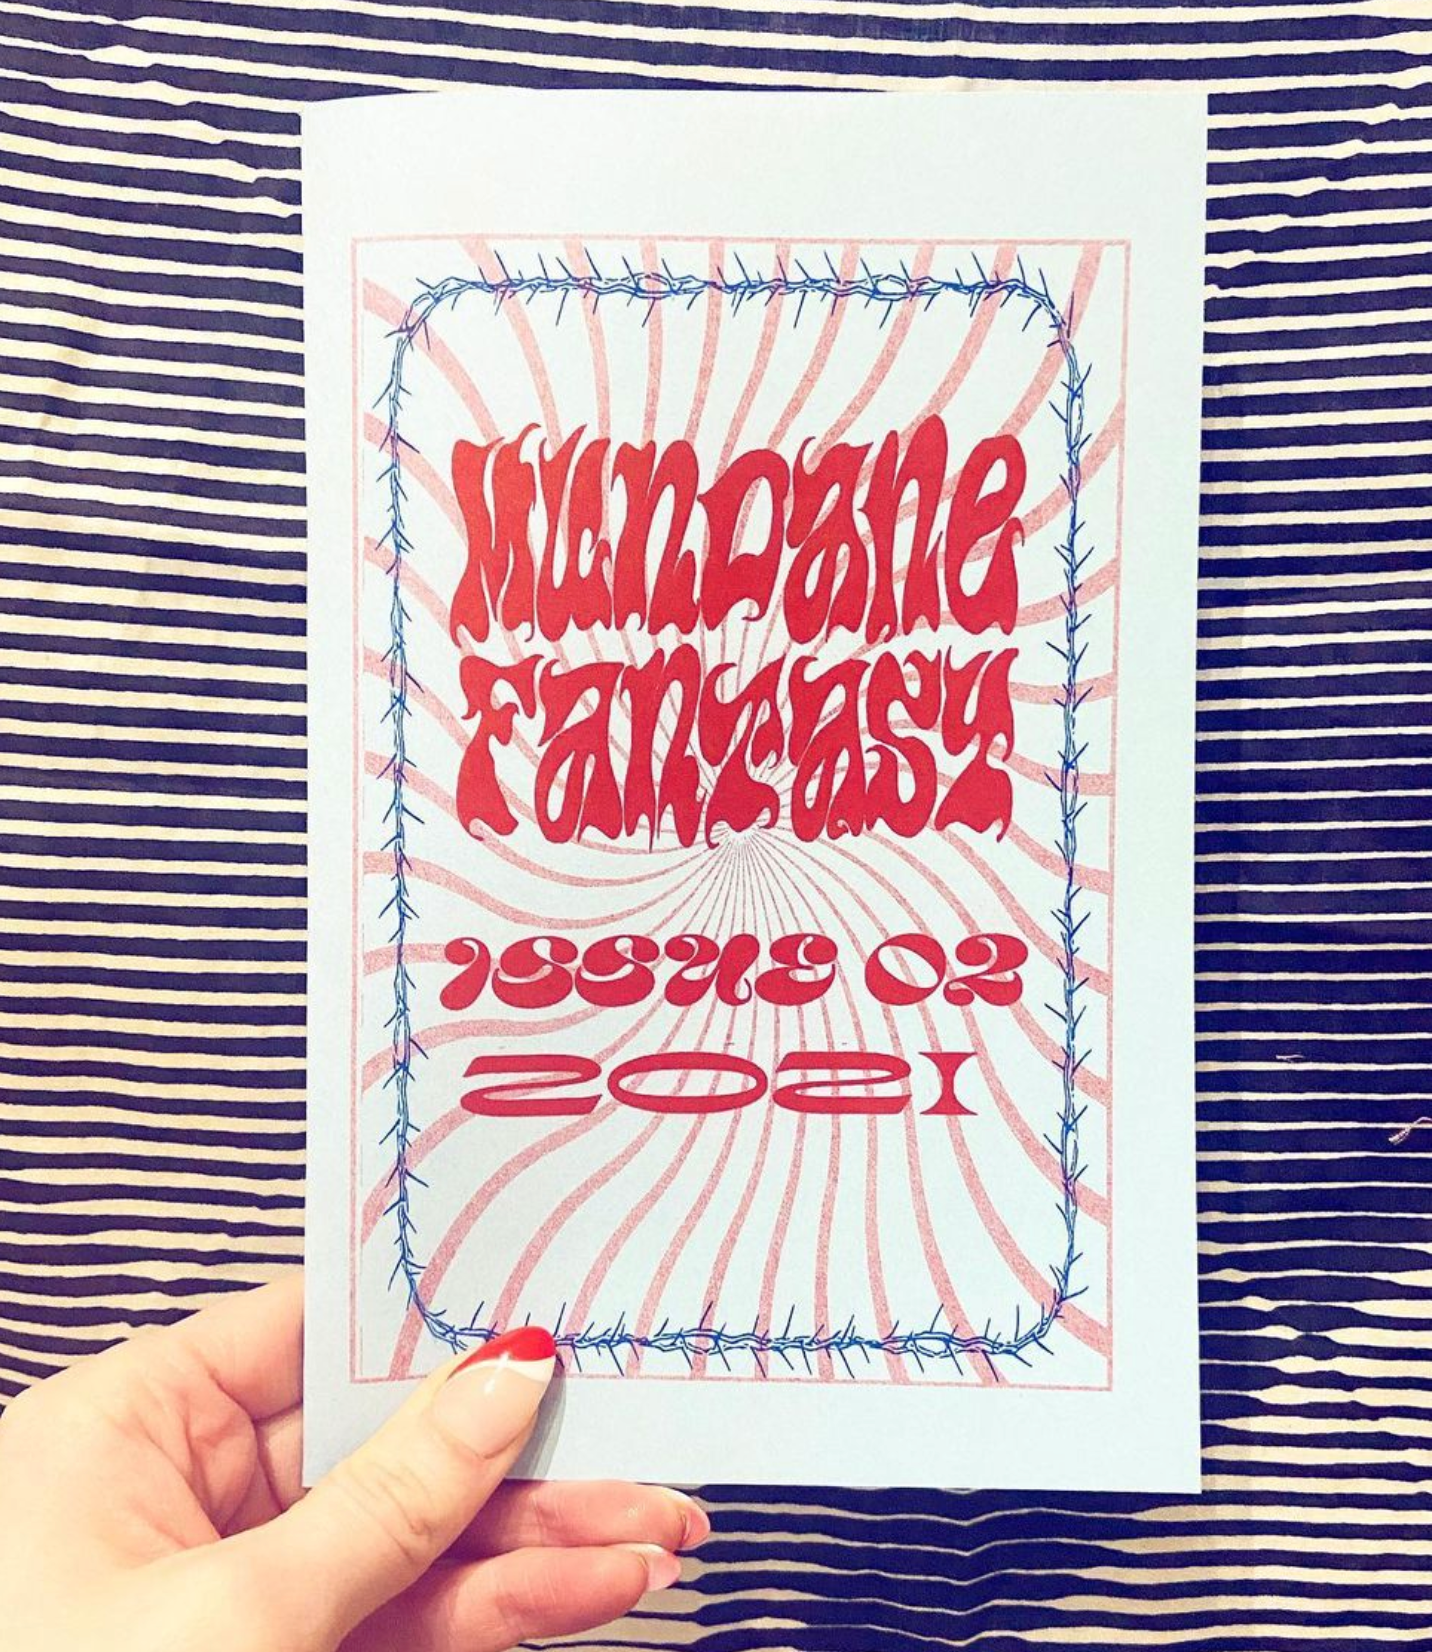 Mundane
Fantasy
ISSUE 02
2021